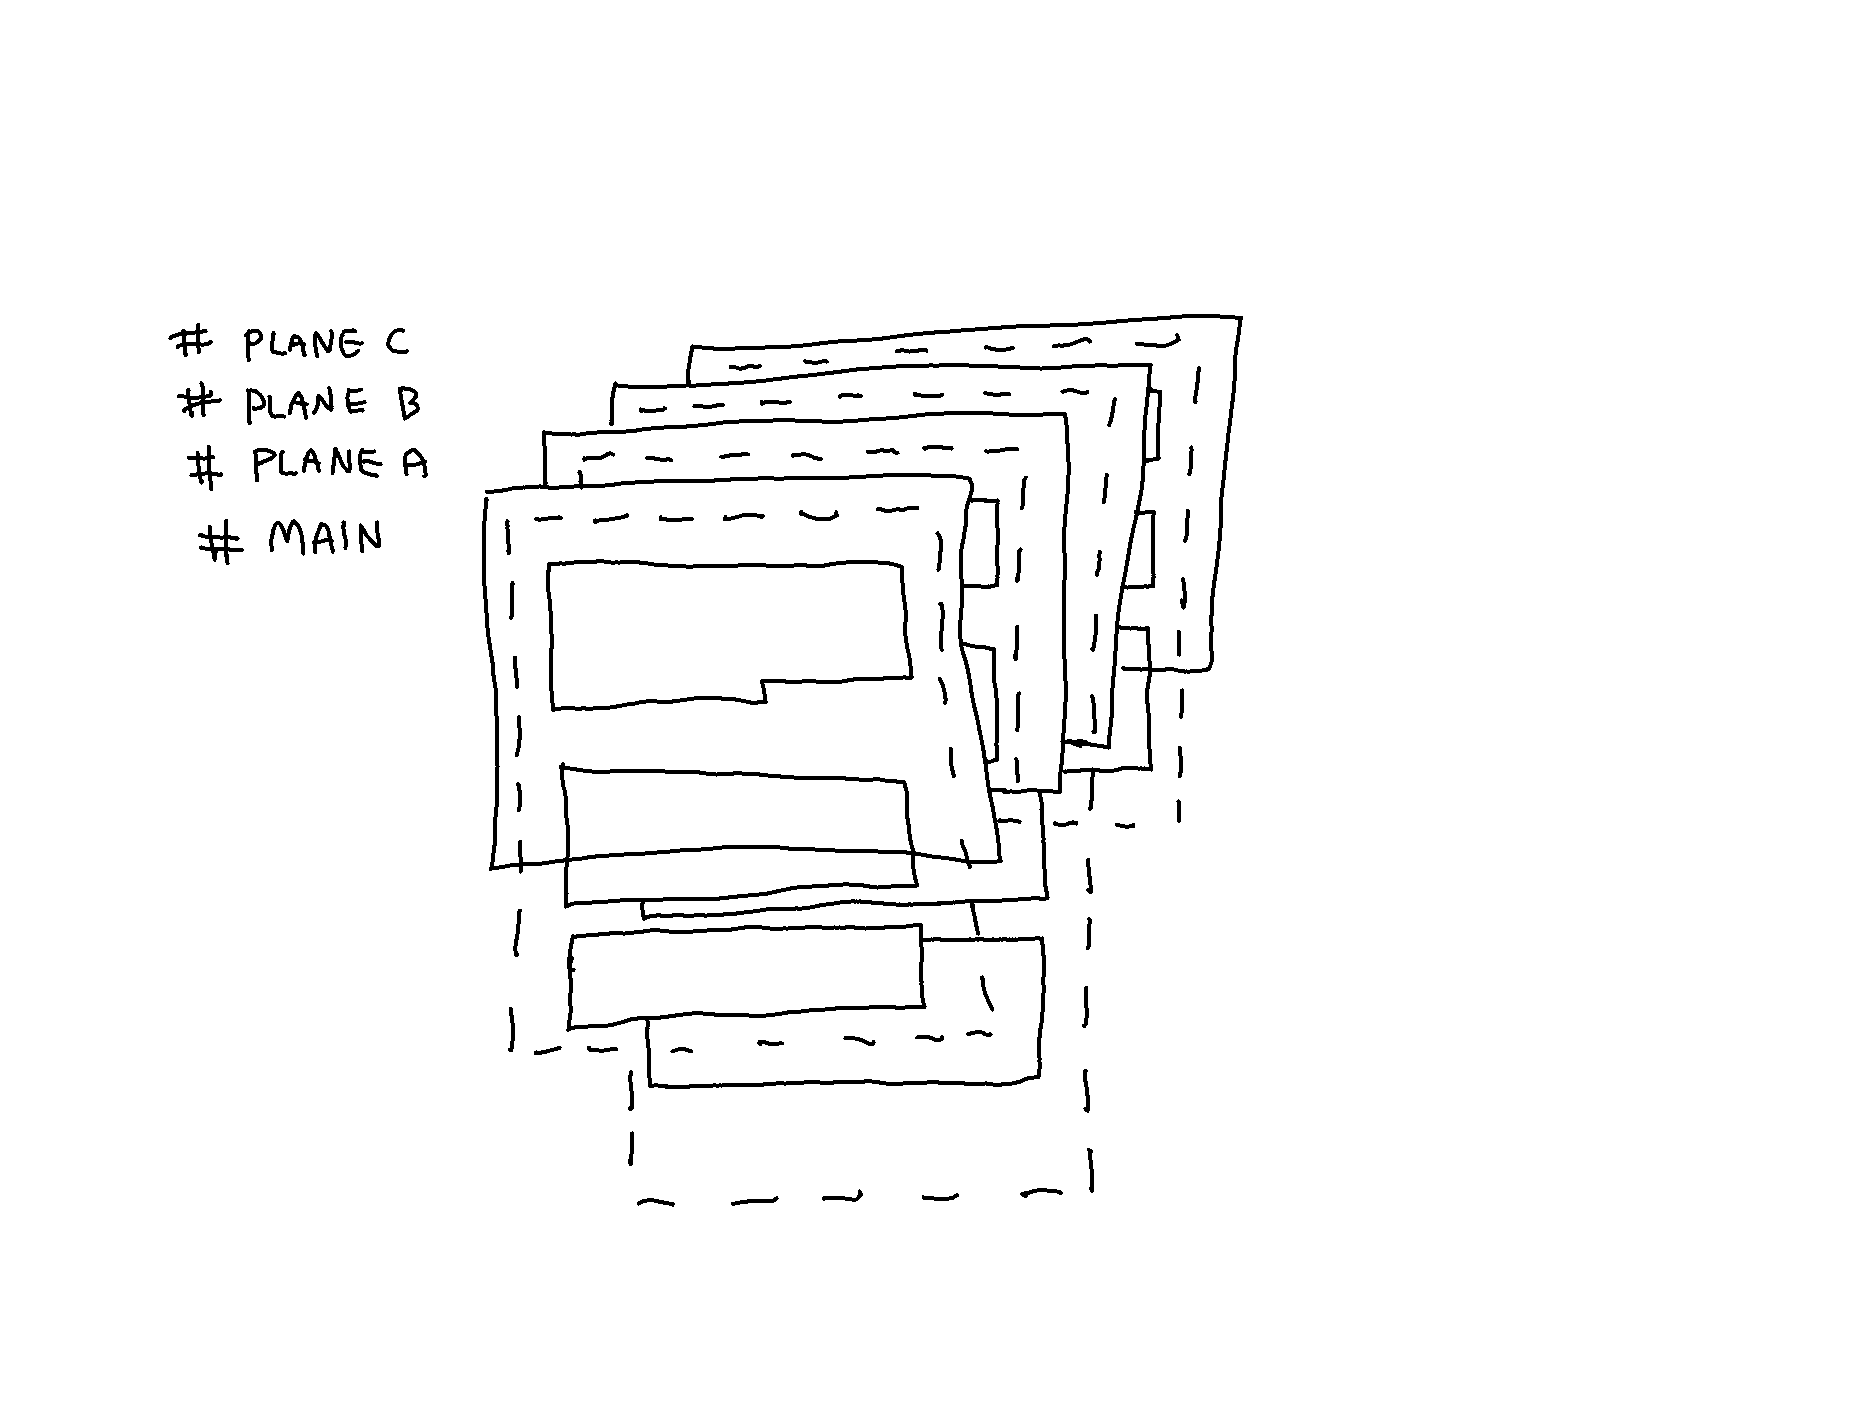 # PLANE C
# PLANE B
# PLANE A
# MAIN